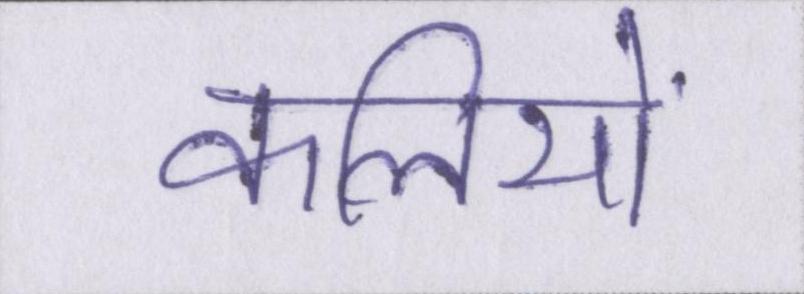 कलियों